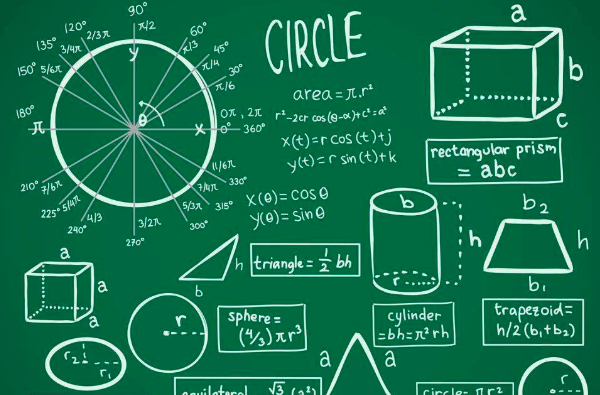 90°
120°
π/2
60°
2/3π
π/3
135°
3/4π
45°
π/4
150°
5/6π
30°
π/6
y
θ
180°
π
x
0π, 2π
0°
360°
210°
7/6π
11/6π
330°
225°
5/4π
7/4π
315°
240°
4/3
3/2π
5/3π
300°
270°
CIRCLE
area = π.r²
r²-2cr cos(θ-α)+c²=a²
x(t)=r cos(t)+j
y(t)=r sin(t)+k
x(θ)=cosθ
y(θ)=sinθ
a
b
c
rectangular prism
= abc
b
h
r
b₂
h
b₁
h
b
triangle = 1/2 bh
a
a
a
r
sphere =
(4/3) πr³
cylinder
=bh=π²rh
trapezoid=
h/2 (b₁+b₂)
r₂
r₁
a
a
r
√3
circle= πr²